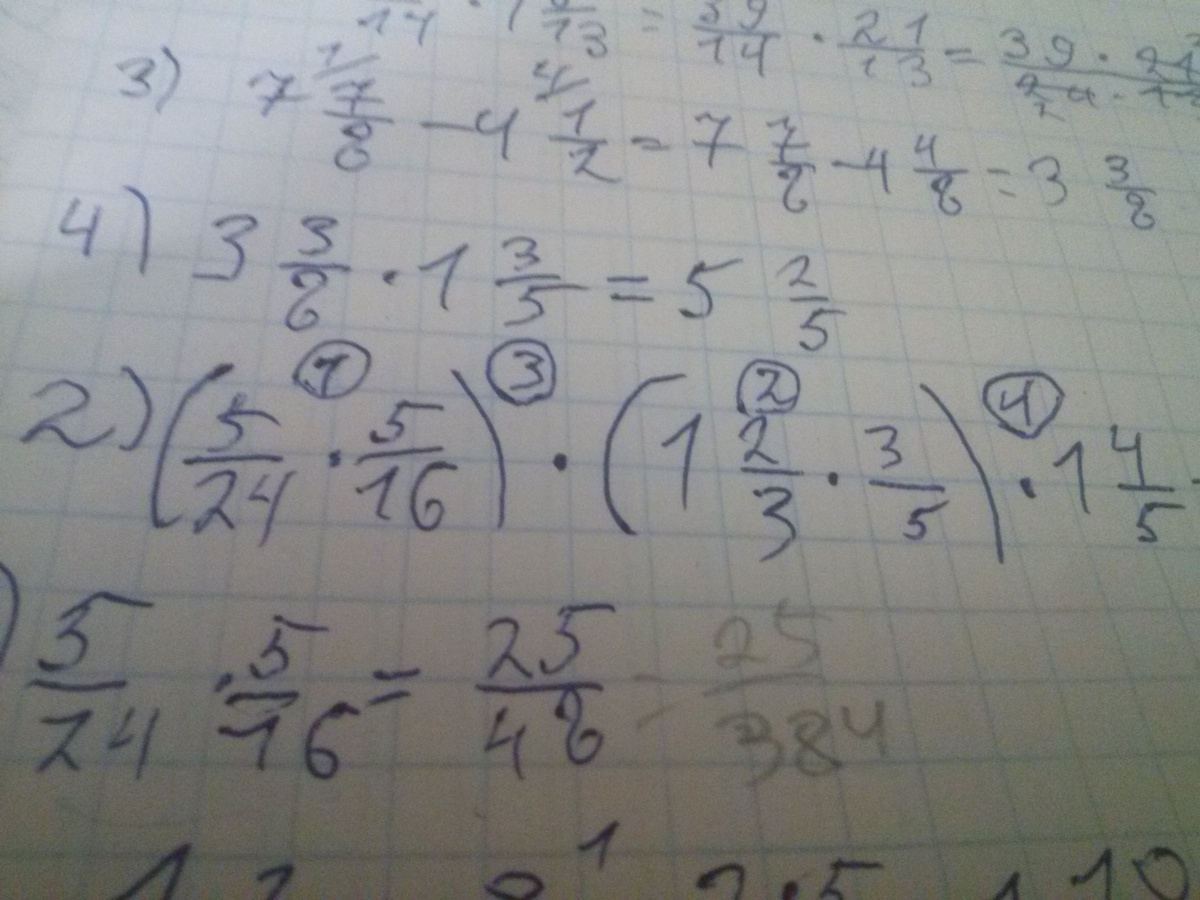 14 · 1 8/13 = 39/14 · 21/13 = 39 · 21
3) 7 7/8 - 4 1/2 = 7 7/8 - 4 4/8 = 3 3/8
4) 3 3/8 · 1 3/5 = 5 2/5
2) (5/24 · 5/16) · (1 2/3 · 3/5) · 1 4/5
1 3 2 4
) 5/24 · 5/16 = 25/48 = 25/384